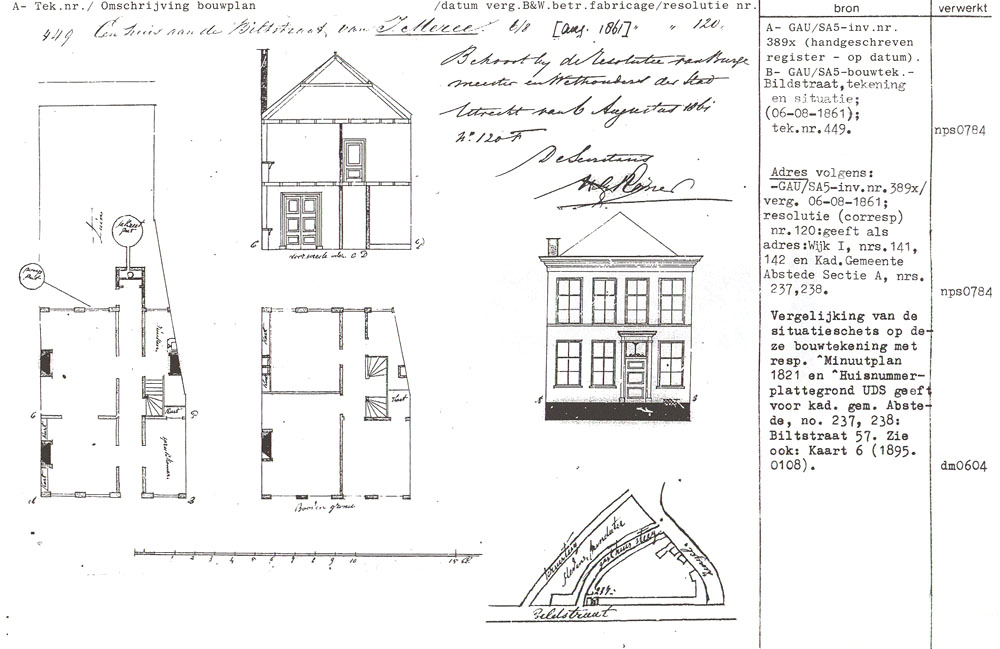 A- Tek.nr./ Omschrijving bouwplan /datum verg.B&W.betr.fabricage/resolutie nr.
bron
verwerkt
449 Een huis aan de Biltstraat, van 6/8 [aug. 1861] " " 120.
Behoort bij de Resolutie van Burge
meester en Wethouders der Stad
Utrecht van 6 Augustus 1861
No. 120 F
De Secretaris
A- GAU/SA5-inv.nr.
389x (handgeschreven
register - op datum).
B- GAU/SA5-bouwtek.-
Bildstraat,tekening
en situatie;
(06-08-1861);
tek.nr.449.
nps0784
Adres volgens:
-GAU/SA5-inv.nr.389x/
verg. 06-08-1861;
resolutie (corresp)
nr.120:geeft als
adres:Wijk I, nrs.141,
142 en Kad.Gemeente
Abstede Sectie A, nrs.
237,238.
nps0784
Vergelijking van de
situatieschets op de-
ze bouwtekening met
resp. ^Minuutplan
1821 en ^Huisnummer-
plattegrond UDS geeft
voor kad. gem. Abste-
de, no. 237, 238:
Biltstraat 57. Zie
ook: Kaart 6 (1895.
0108).
dm0604
Tuin
doorsnede over C D
Keuken
Kast
Kast
Kast
Kast
A
B
Boven grond
1 2 3 4 5 6 7 8 9 10 15 El.
237.
Bildstraat